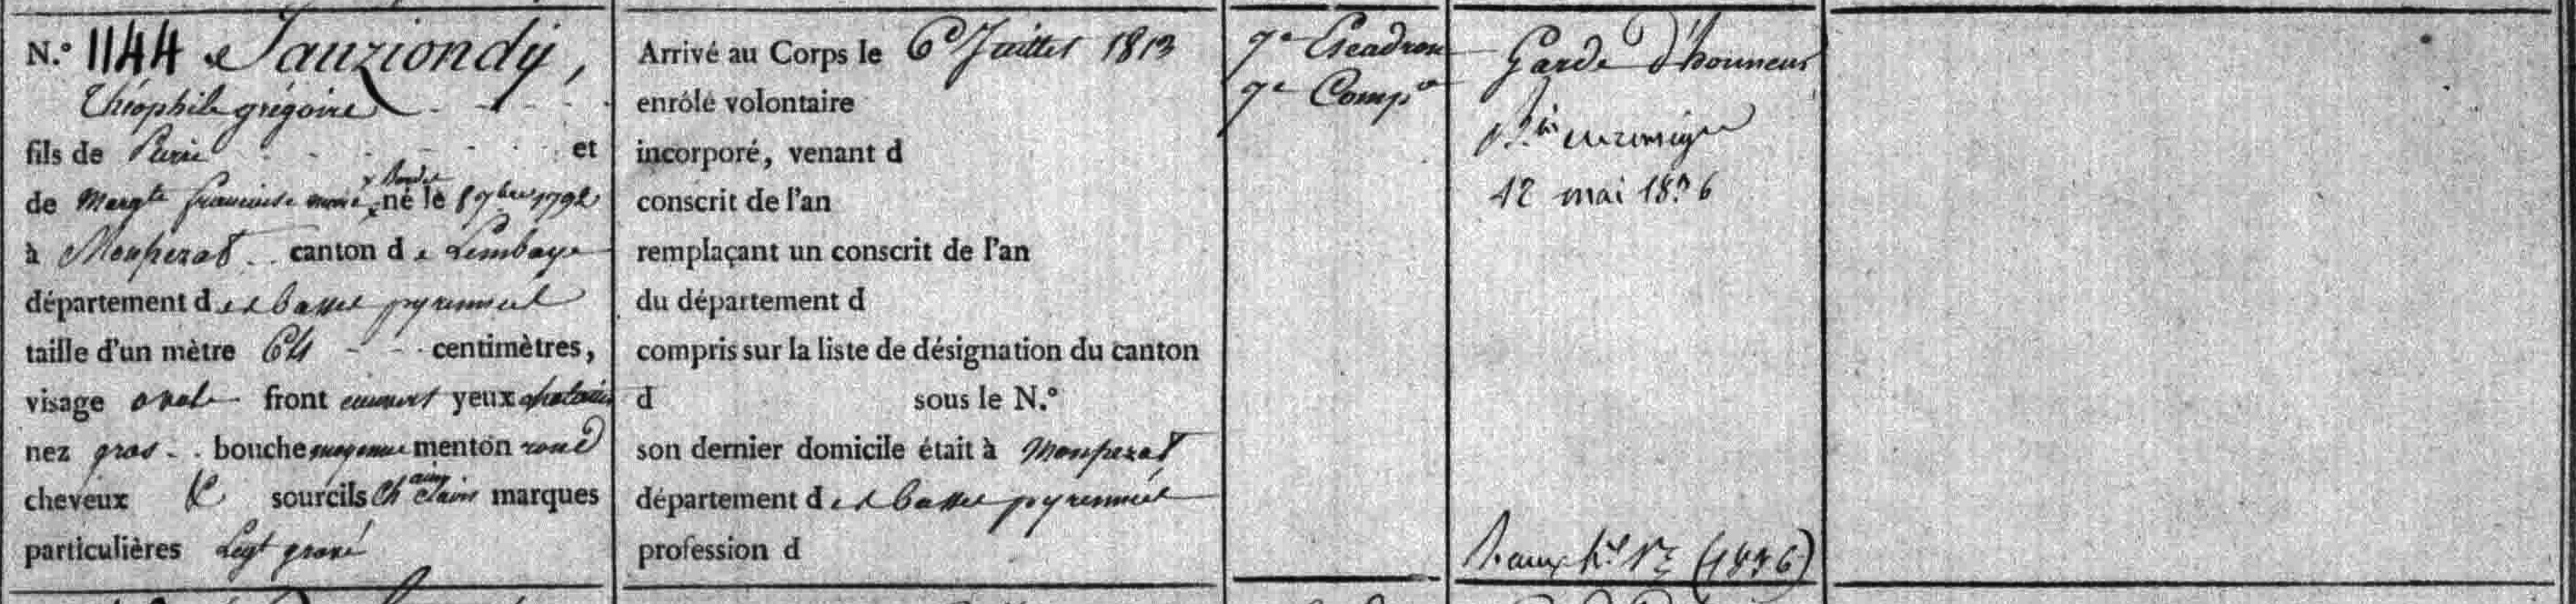 N.° 1144 Sauziondy,
Théophile grégoire
fils de Pierre et
de Margte francoise né le 8 7bre 1792
à Monpezat canton de Lembaye
département des basses pyrennées
taille d'un mètre 64 centimètres,
visage oval front couvert yeux chatains
nez gros bouche moyenne menton rond
cheveux sourcils Chatains marques
particulières Legt gravé
Arrivé au Corps le 6 Juillet 1813
enrôlé volontaire
incorporé, venant d
conscrit de l'an
remplaçant un conscrit de l'an
du département d
compris sur la liste de désignation du canton
d sous le N.°
son dernier domicile était à Monpezat
département des basses pyrennées
profession d
7e Escadron
7e Compie
Garde d'honneur
12 mai